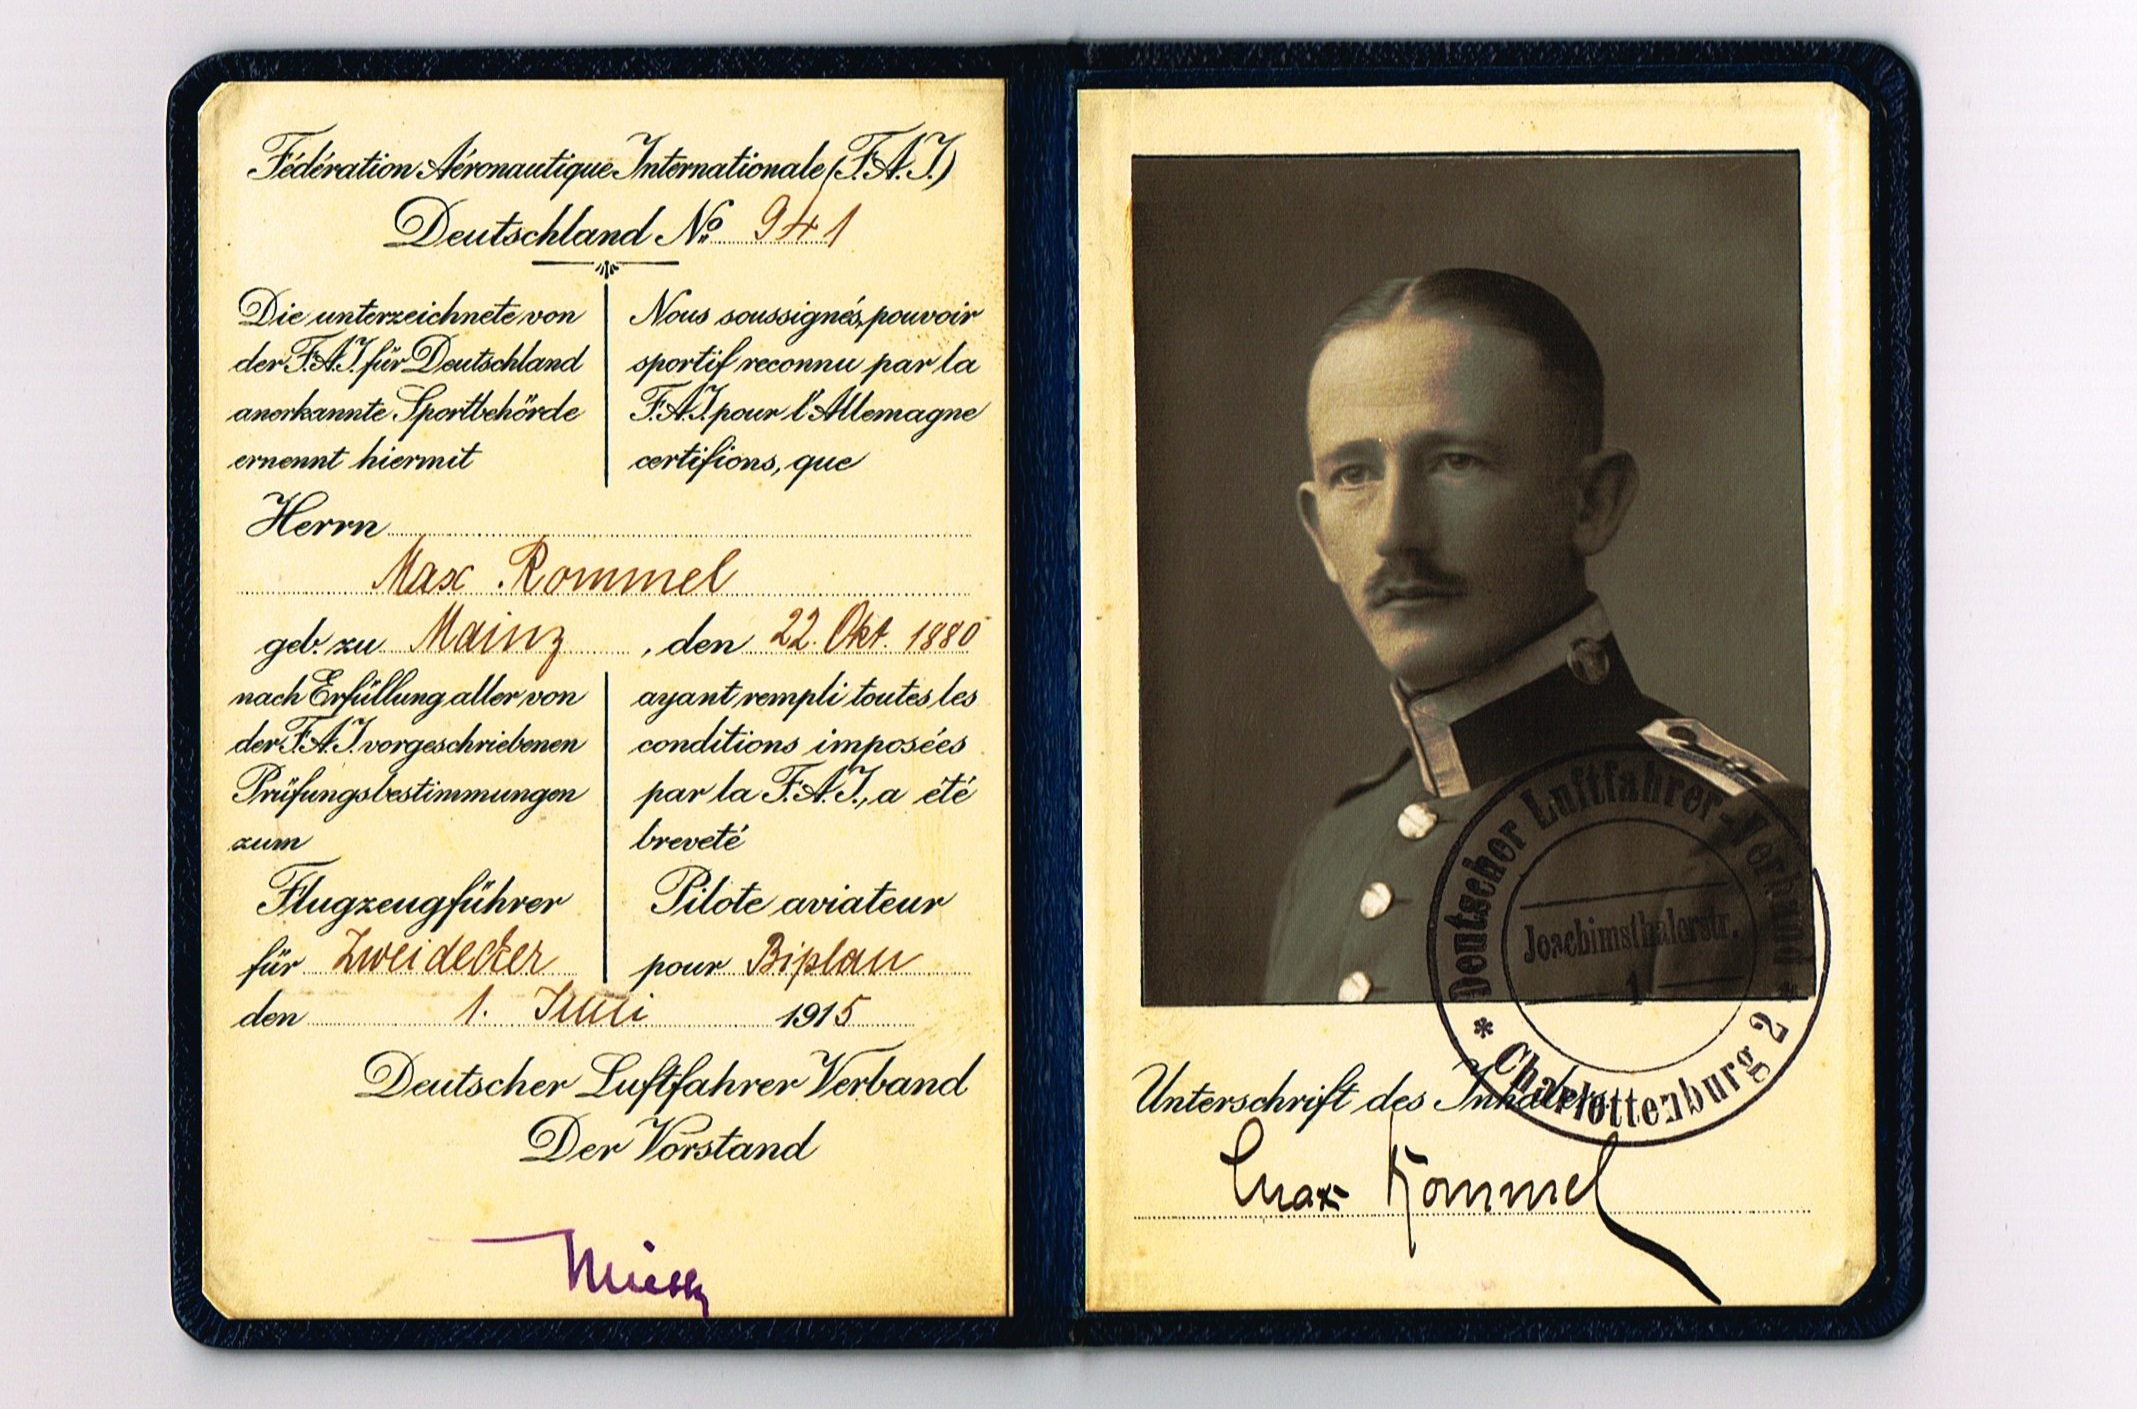 Fédération Aéronautique Internationale (F.A.I.)
Deutschland No. 941
Die unterzeichnete von
der F.A.I. für Deutschland
anerkannte Sportbehörde
ernennt hiermit
Nous soussignés, pouvoir
sportif reconnu par la
F.A.I. pour l'Allemagne
certifions, que
Herrn
Max Rommel
geb. zu Mainz, den 22. Okt. 1880
nach Erfüllung aller von
der F.A.I. vorgeschriebenen
Prüfungsbestimmungen
zum
Flugzeugführer
für Zweidecker
ayant rempli toutes les
conditions imposées
par la F.A.I., a été
breveté
Pilote aviateur
pour Biplan
den 1. Juni 1915
Deutscher Luftfahrer Verband
Der Vorstand
Deutscher Luftfahrer-Verband
Joachimsthalerstr.
1
* Charlottenburg 2 *
Unterschrift des Inhabers
Max Rommel